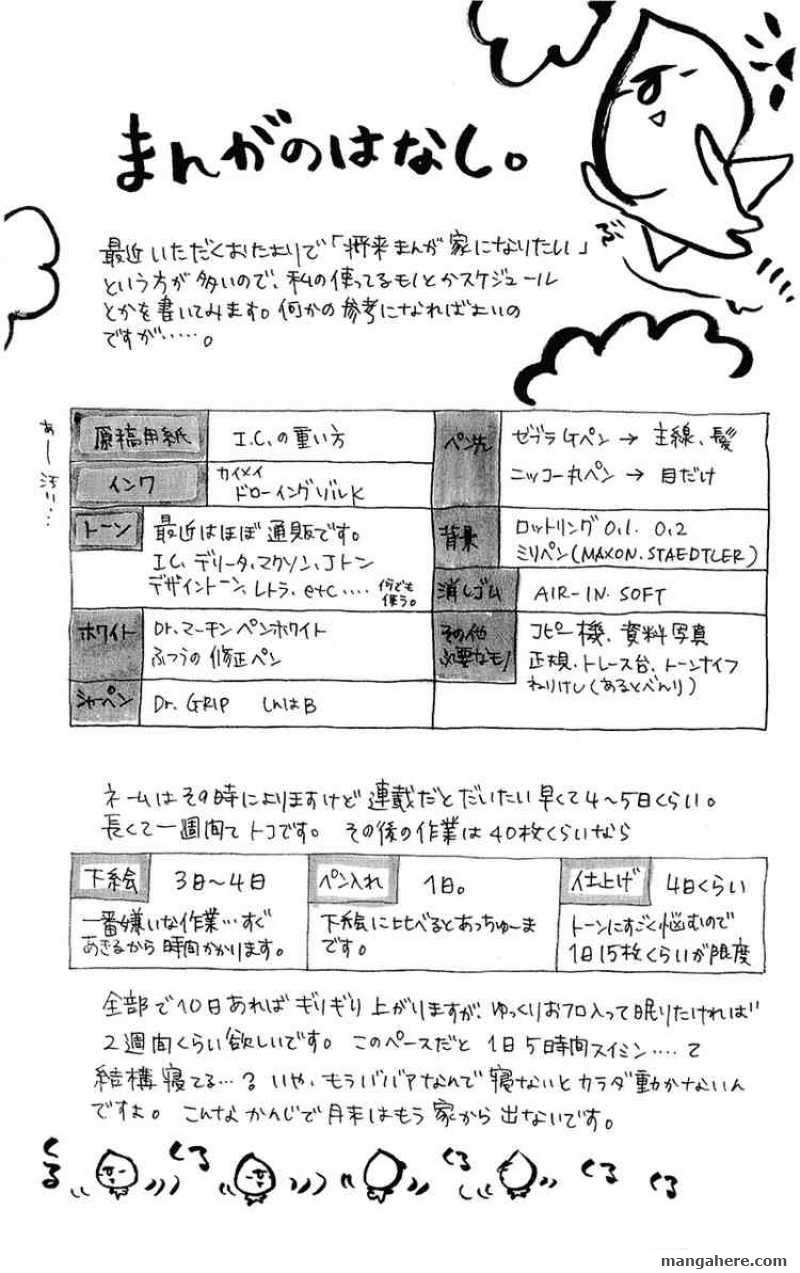 まんがのはなし。
最近いただくおたよりで「将来まんが家になりたい」
という方が多いので、私の使ってるモノとかスケジュール
とかを書いてみます。何かの参考になればよいの
ですが……。
あー汚い…
原稿用紙
I.C.の重い方
インク
カイメイ
ドローイングゾルK
トーン
最近はほぼ通販です。
I.C, デリータ, マクソン, Jトン
デザイントーン, レトラ, etc....
何でも
使う。
ホワイト
Dr.マーチンペンホワイト
ふつうの修正ペン
シャーペン
Dr. GRIP しんはB
ペン先
ゼブラGペン → 主線、髪
ニッコー丸ペン → 目だけ
背景
ロットリング 0.1. 0.2
ミリペン(MAXON. STAEDTLER)
消しゴム
AIR-IN SOFT
その他
必要なモノ
コピー機、資料写真
定規、トレース台、トーンナイフ
ねりけし(あるとべんり)
ネームはその時によりますけど連載だとだいたい早くて4~5日くらい。
長くて一週間てトコです。 その後の作業は40枚くらいなら
下絵
3日~4日
一番嫌いな作業…すぐ
あきるから時間かかります。
ペン入れ
1日。
下絵に比べるとあっちゅーま
です。
仕上げ
4日くらい
トーンにすごく悩むので
1日15枚くらいが限度
全部で10日あればギリギリ上がりますが、ゆっくりおフロ入って眠りたければ
2週間くらい欲しいです。このペースだと1日5時間スイミン....て
結構寝てる…? いや、もうババアなんで寝ないとカラダ動かないん
ですよ。 こんなかんじで月末はもう家から出ないです。
くる
くる
くる
くる
くる
mangahere.com